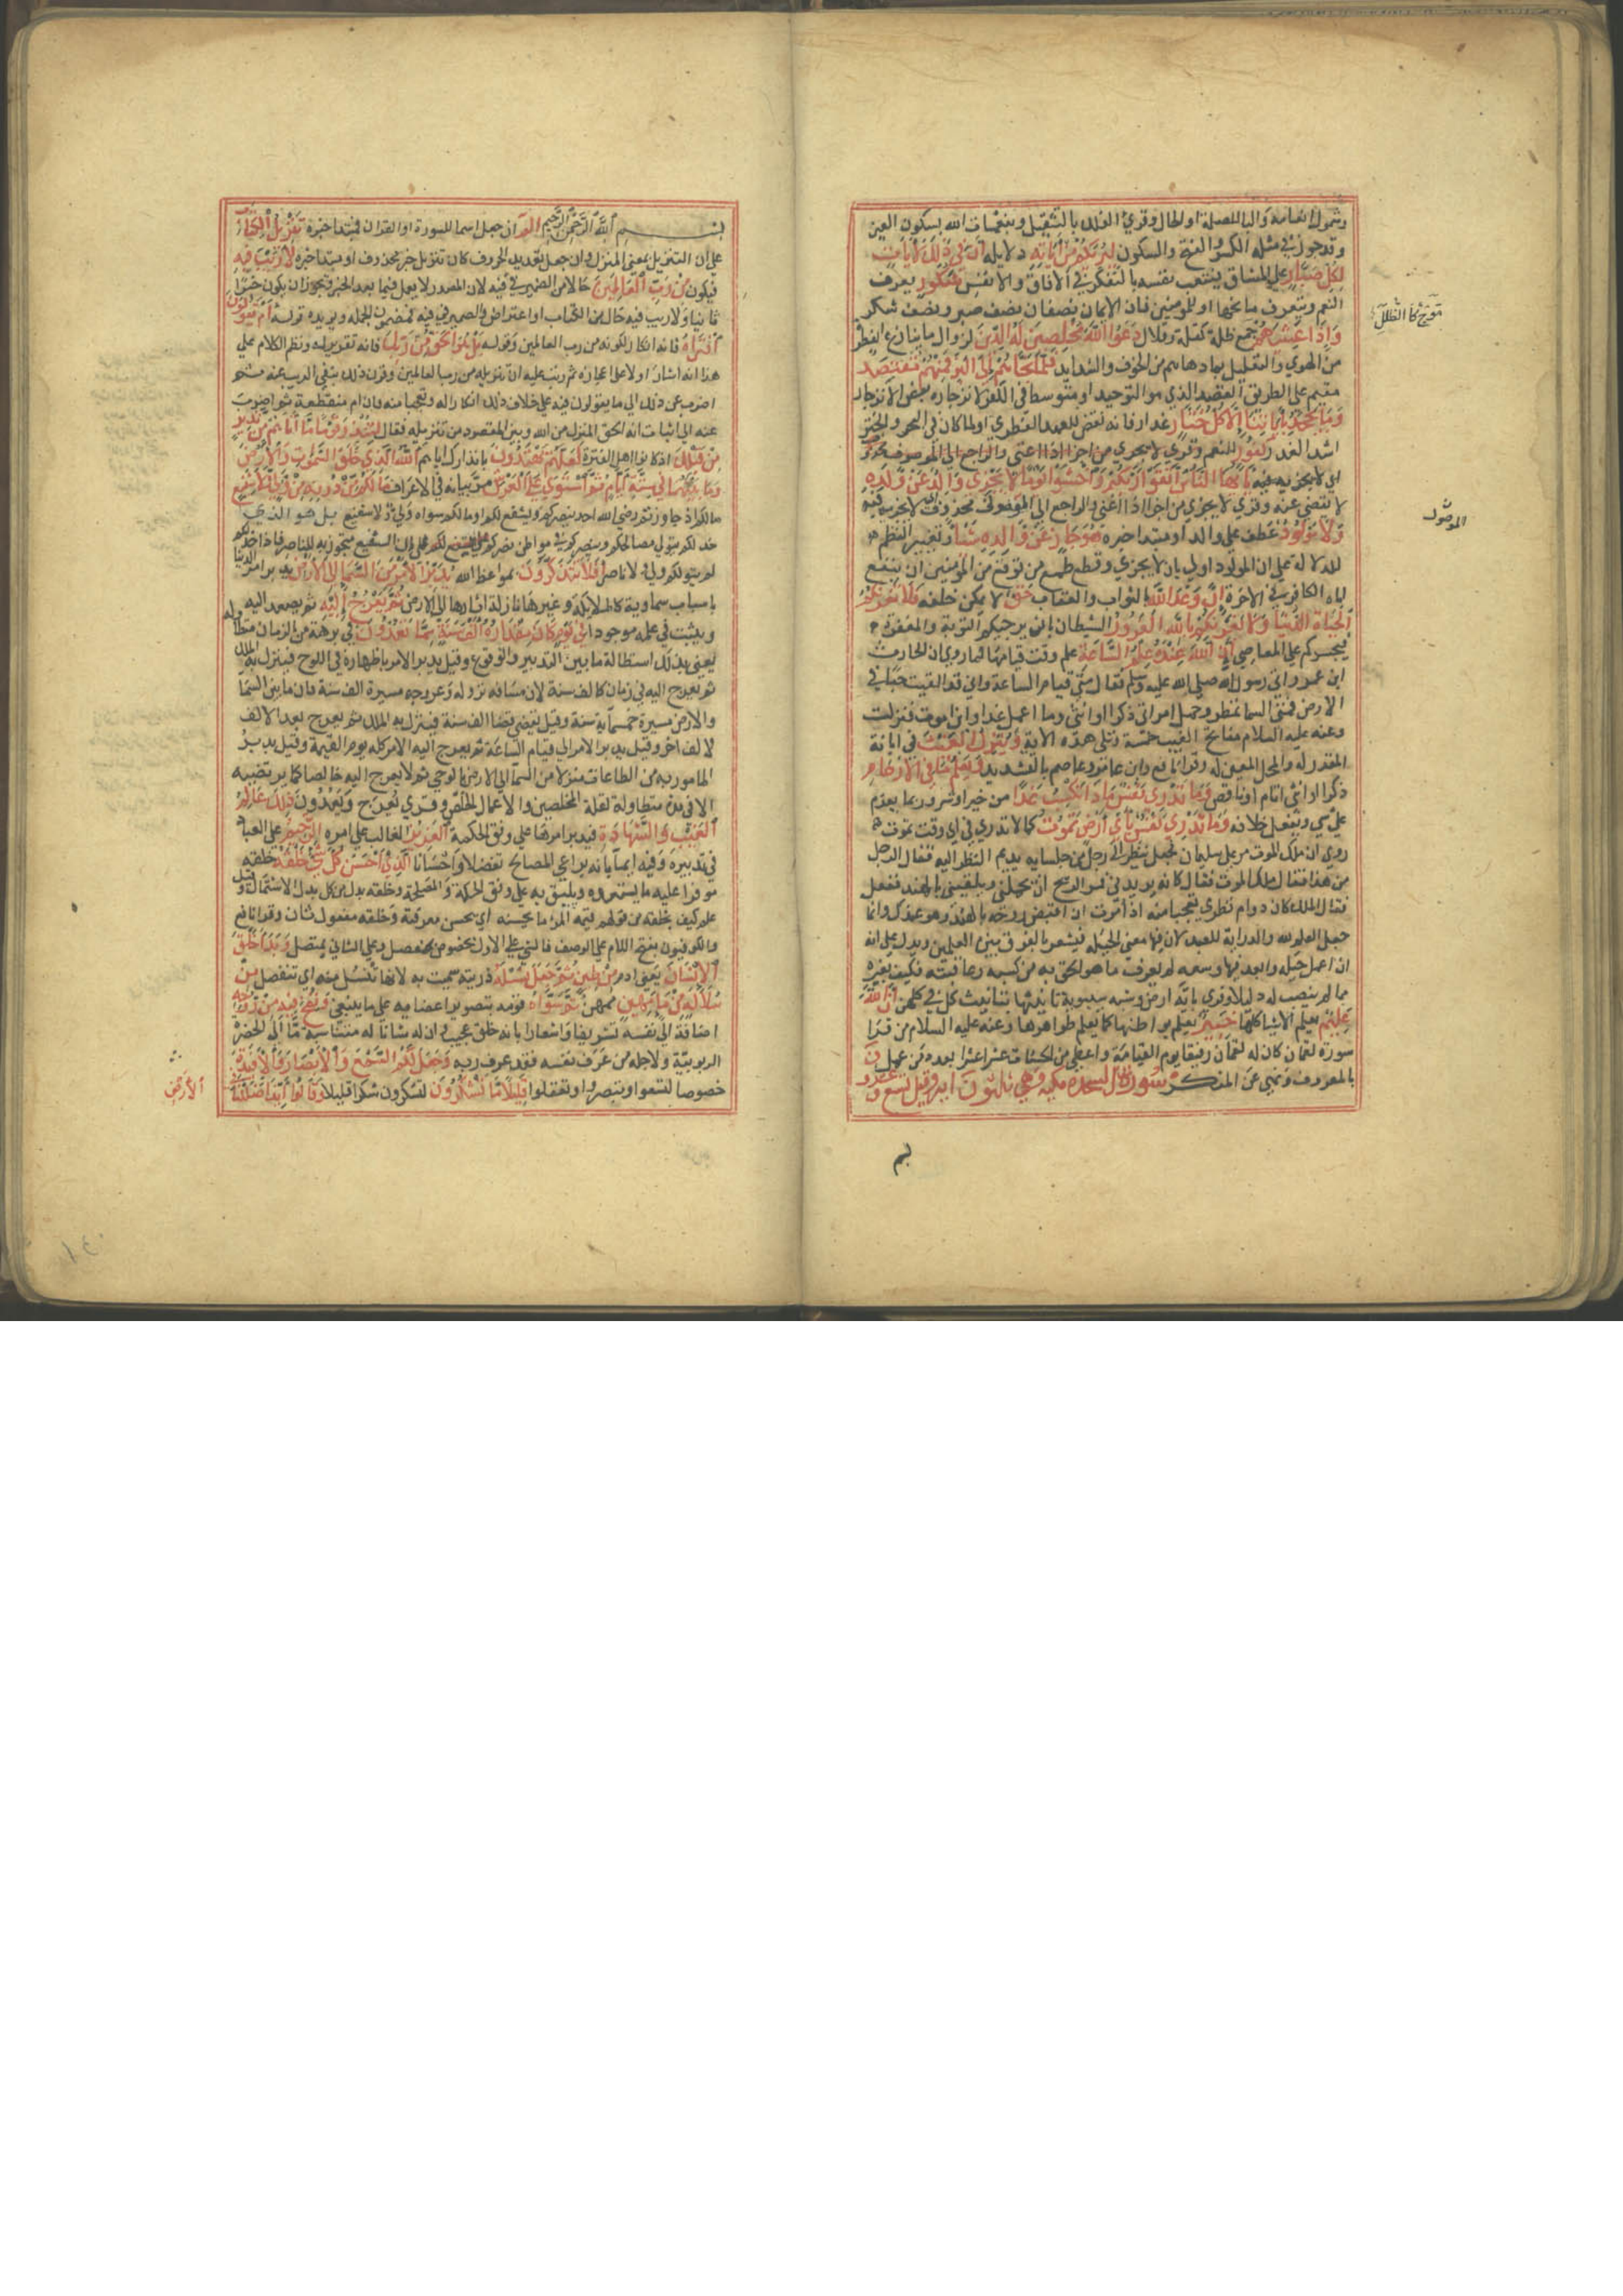 وشمول انعامه والبا للصلة او الحال وقري الفلك بالتثقيل وبنعمات الله بسكون العين
وقد جوز في مثله الكسر والفتح والسكون ليريكم من اياته دلايله ان في ذلك لايات
لكل صبار على المشاق فيتعب نفسه بالتفكر في الافاق والانفس شكور يعرف
النعم ويتعرف مانحها او للمومنين فان الايمان نصفان نصف صبر ونصف شكر
واذا غشيهم موج كالظلل جمع ظلة كقلة وقلال دعوا الله مخلصين له الدين لزوال ما ينازع الفطرة
من الهوي والتقليد بما دهاهم من الخوف والشدايد فلما نجاهم الى البر فمنهم مقتصد
مقيم على الطريق القصد الذي هو التوحيد او متوسط في الكفر لانزجاره بعض الانزجار
وما يجحد باياتنا الا كل ختار غدار فانه نقض للعهد الفطري او لما كان في البحر والختر
اشد الغدر كفور للنعم يا ايها الناس اتقوا ربكم واخشوا يوما لا يجزي والد عن ولده
لا يقضي عنه وقري لا يجزي من اجزا اذا اغنى والراجع الى الموصوف محذوف اي لا يجزي فيه
ولا مولود عطف على والد او مبتدا خبره هو جاز عن والده شيا وتغيير النظم
للدلالة على ان المولود اولي بان لا يجزي وقطع طمع من توقع من المومنين ان ينفع
اباه الكافر في الاخرة ان وعد الله بالثواب والعقاب حق لا يمكن خلفه فلا تغرنكم
الحياة الدنيا ولا يغرنكم بالله الغرور الشيطان بان يرجيكم التوبة والمغفرة
فيجسركم على المعاصي ان الله عنده علم الساعة علم وقت قيامها لما روي ان الحارث
ابن عمرو اتى رسول الله صلى الله عليه وسلم فقال متى قيام الساعة واني قد القيت حباتي في
الارض فمتى السما تمطر وحمل امراتي ذكر ام انثى وما اعمل غدا واين اموت فنزلت
وعنه عليه السلام مفاتح الغيب خمسة وتلى هذه الاية وينزل الغيث في ابانه
المقدر له والمحل المعين له وقرا نافع وابن عامر وعاصم بالتشديد ويعلم ما في الارحام
ذكر ام انثى اتام او ناقص وما تدري نفس ماذا تكسب غدا من خير او شر وربما يعزم
على شي ويفعل خلافه وما تدري نفس باي ارض تموت كما لا تدري في اي وقت تموت
روي ان ملك الموت مر على سليمان فجعل ينظر الى رجل من جلسايه يديم النظر اليه فقال الرجل
من هذا فقال ملك الموت فقال كانه يريدني فمر الريح ان تحملني وتلقيني بالهند ففعل
فقال الملك كان دوام نظري تعجبا منه اذ امرت ان اقبض روحه بالهند وهو عندك وانما
جعل العلم لله والدراية للعبد لان فيها معنى الحيلة فيشعر بالفرق بين العلمين ويدل على انه
ان اعمل حيله وابعد فيها وسعه لم يعرف ما هو لحق به من كسبه وعاقبته فكيف بغيره
مما لم ينصب له دليلا وقري باية ارض وشبه سيبويه تانيثها بتانيث كل في كلتهن ان الله
عليم يعلم الاشيا كلها خبير يعلم بواطنها كما يعلم ظواهرها وعنه عليه السلام من قرا
سورة لقمان كان له لقمان رفيقا يوم القيامة واعطي من الحسنات عشرا عشرا بعدد من عمل
بالمعروف ونهي عن المنكر سورة السجدة مكية وهي ثلاثون اية وقيل تسع وعشرون
موج كالظلل
الموصوف
بسم
بسم الله الرحمن الرحيم الم ان جعل اسما للسورة او القران فمبتدا خبره تنزيل الكتاب
على ان التنزيل بمعنى المنزل وان جعل تعديد الحروف كان تنزيل خبر محذوف او مبتدا خبره لا ريب فيه
فيكون من رب العالمين حالا من الضمير في فيه لان المصدر لا يعمل فيما بعد الخبر ويجوز ان يكون خبرا
ثانيا ولا ريب فيه حال من الكتاب او اعتراض والضمير في فيه لمضمون الجملة ويويده قوله ام يقولون
افتراه فانه انكار لكونه من رب العالمين وقوله بل هو الحق من ربك فانه تقرير له ونظم الكلام على
هذا انه اشار اولا على اعجازه ثم رتب عليه ان تنزيله من رب العالمين وقرر ذلك بنفي الريب عنه ثم
اضرب عن ذلك الى ما يقولون فيه على خلاف ذلك انكارا له وتعجبا منه فان ام منقطعة ثم اضرب
عنه الى اثبات انه الحق المنزل من الله وبين المقصود من تنزيله فقال لتنذر قوما ما اتاهم من نذير
من قبلك اذ كانوا اهل الفترة لعلهم يهتدون بانذارك اياهم الله الذي خلق السموات والارض
وما بينهما في ستة ايام ثم استوى على العرش مر بيانه في الاعراف ما لكم من دونه من ولي ولا شفيع
ما لكم اذ جاوزتم رضى الله احد ينصركم ويشفع لكم او ما لكم سواه ولي ولا شفيع بل هو الذي
يتولى مصالحكم وينصركم في مواطن نصركم على ان الشفيع متجوز به للناصر فاذا خذلكم
لم يبق لكم ولي ولا ناصر افلا تتذكرون بمواعظ الله يدبر الامر من السما الى الارض يدبر امر الدنيا
باسباب سماوية كالملايكة وغيرها نازلة اثارها الى الارض ثم يعرج اليه ثم يصعد اليه
ويثبت في علمه موجودا في يوم كان مقداره الف سنة مما تعدون في برهة من الزمان متطاولة
يعني بذلك استطالة ما بين التدبير والوقوع وقيل يدبر الامر باظهاره في اللوح فينزل به الملك
ثم يعرج اليه في زمان كالف سنة لان مسافة نزوله وعروجه مسيرة الف سنة فان ما بين السما
والارض مسيرة خمسماية سنة وقيل يقضي قضا الف سنة فينزل به الملك ثم يعرج بعد الالف
لالف اخر وقيل يدبر الامر الى قيام الساعة ثم يعرج اليه الامر كله يوم القيمة وقيل يدبر
المامور به من الطاعات منزلا من السما الى الارض بالوحي ثم لا يعرج اليه خالصا كما يرتضيه
الا في مدة متطاولة لقلة المخلصين والاعمال الخلص وقري يعرج ويعدون ذلك عالم
الغيب والشهادة فيدبر امرهما على وفق الحكمة العزيز الغالب على امره الرحيم على العباد
في تدبيره وفيه ايما بانه يراعي المصالح تفضلا واحسانا الذي احسن كل شي خلقه خلقه
موفرا عليه ما يستعده ويليق به على وفق الحكمة والمصلحة وخلقه بدل من كل بدل الاشتمال وقيل
علم كيف يخلقه من قولهم قيمة المرء ما يحسنه اي يحسن معرفته وخلقه مفعول ثان وقرا نافع
والكوفيون بفتح اللام على الوصف فالشي على الاول مخصوص بمنفصل وعلى الثاني بمتصل وبدا خلق
الانسان يعني ادم من طين ثم جعل نسله ذريته سميت به لانها تنسل منه اي تنفصل من
سلالة من ماء مهين ممتهن ثم سواه قومه بتصوير اعضايه على ما ينبغي ونفخ فيه من روحه
اضافة الى نفسه تشريفا واشعارا بانه خلق عجيب وان له شانا له مناسبة ما الى الحضرة
الربوبية ولاجله من عرف نفسه فقد عرف ربه وجعل لكم السمع والابصار والافيدة
خصوصا لتسمعوا وتبصروا وتعقلوا قليلا ما تشكرون تشكرون شكرا قليلا وقالوا ائذا ضللنا
الارض